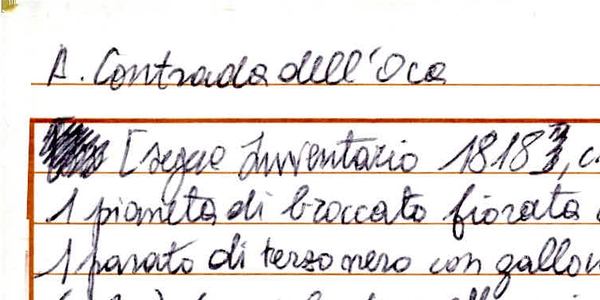 A. Contrada dell'Oca
[segue Inventario 1818],
1 pianeta di broccato fiorata
1 parato di terzo nero con